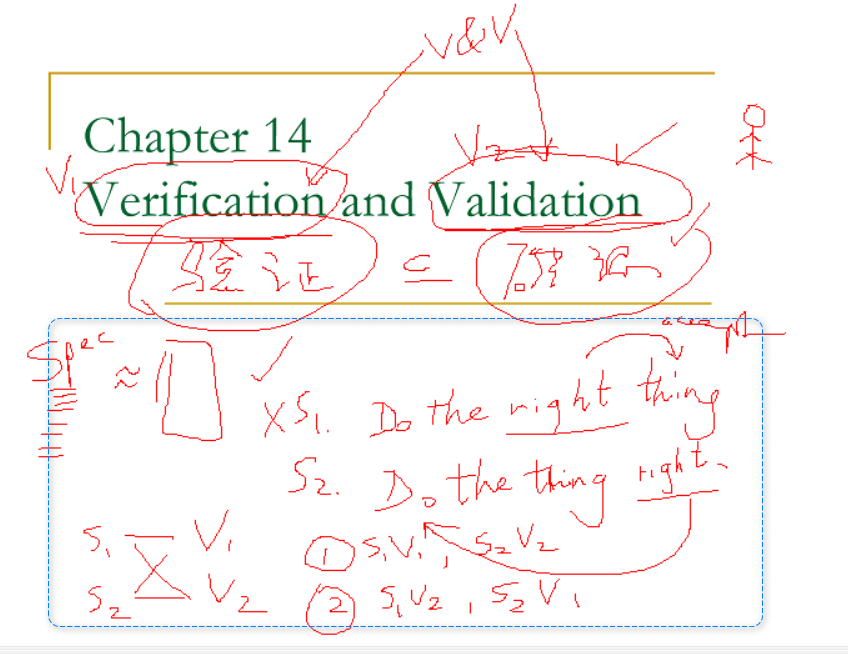 V&V
Chapter 14
V2
V1
Verification and Validation
验证 ⊆ 确认
accept
Spec ≈
× S1. Do the right thing
S2. Do the thing right.
S1 V1
① S1V1, S2V2
S2 V2
② S1V2, S2V1